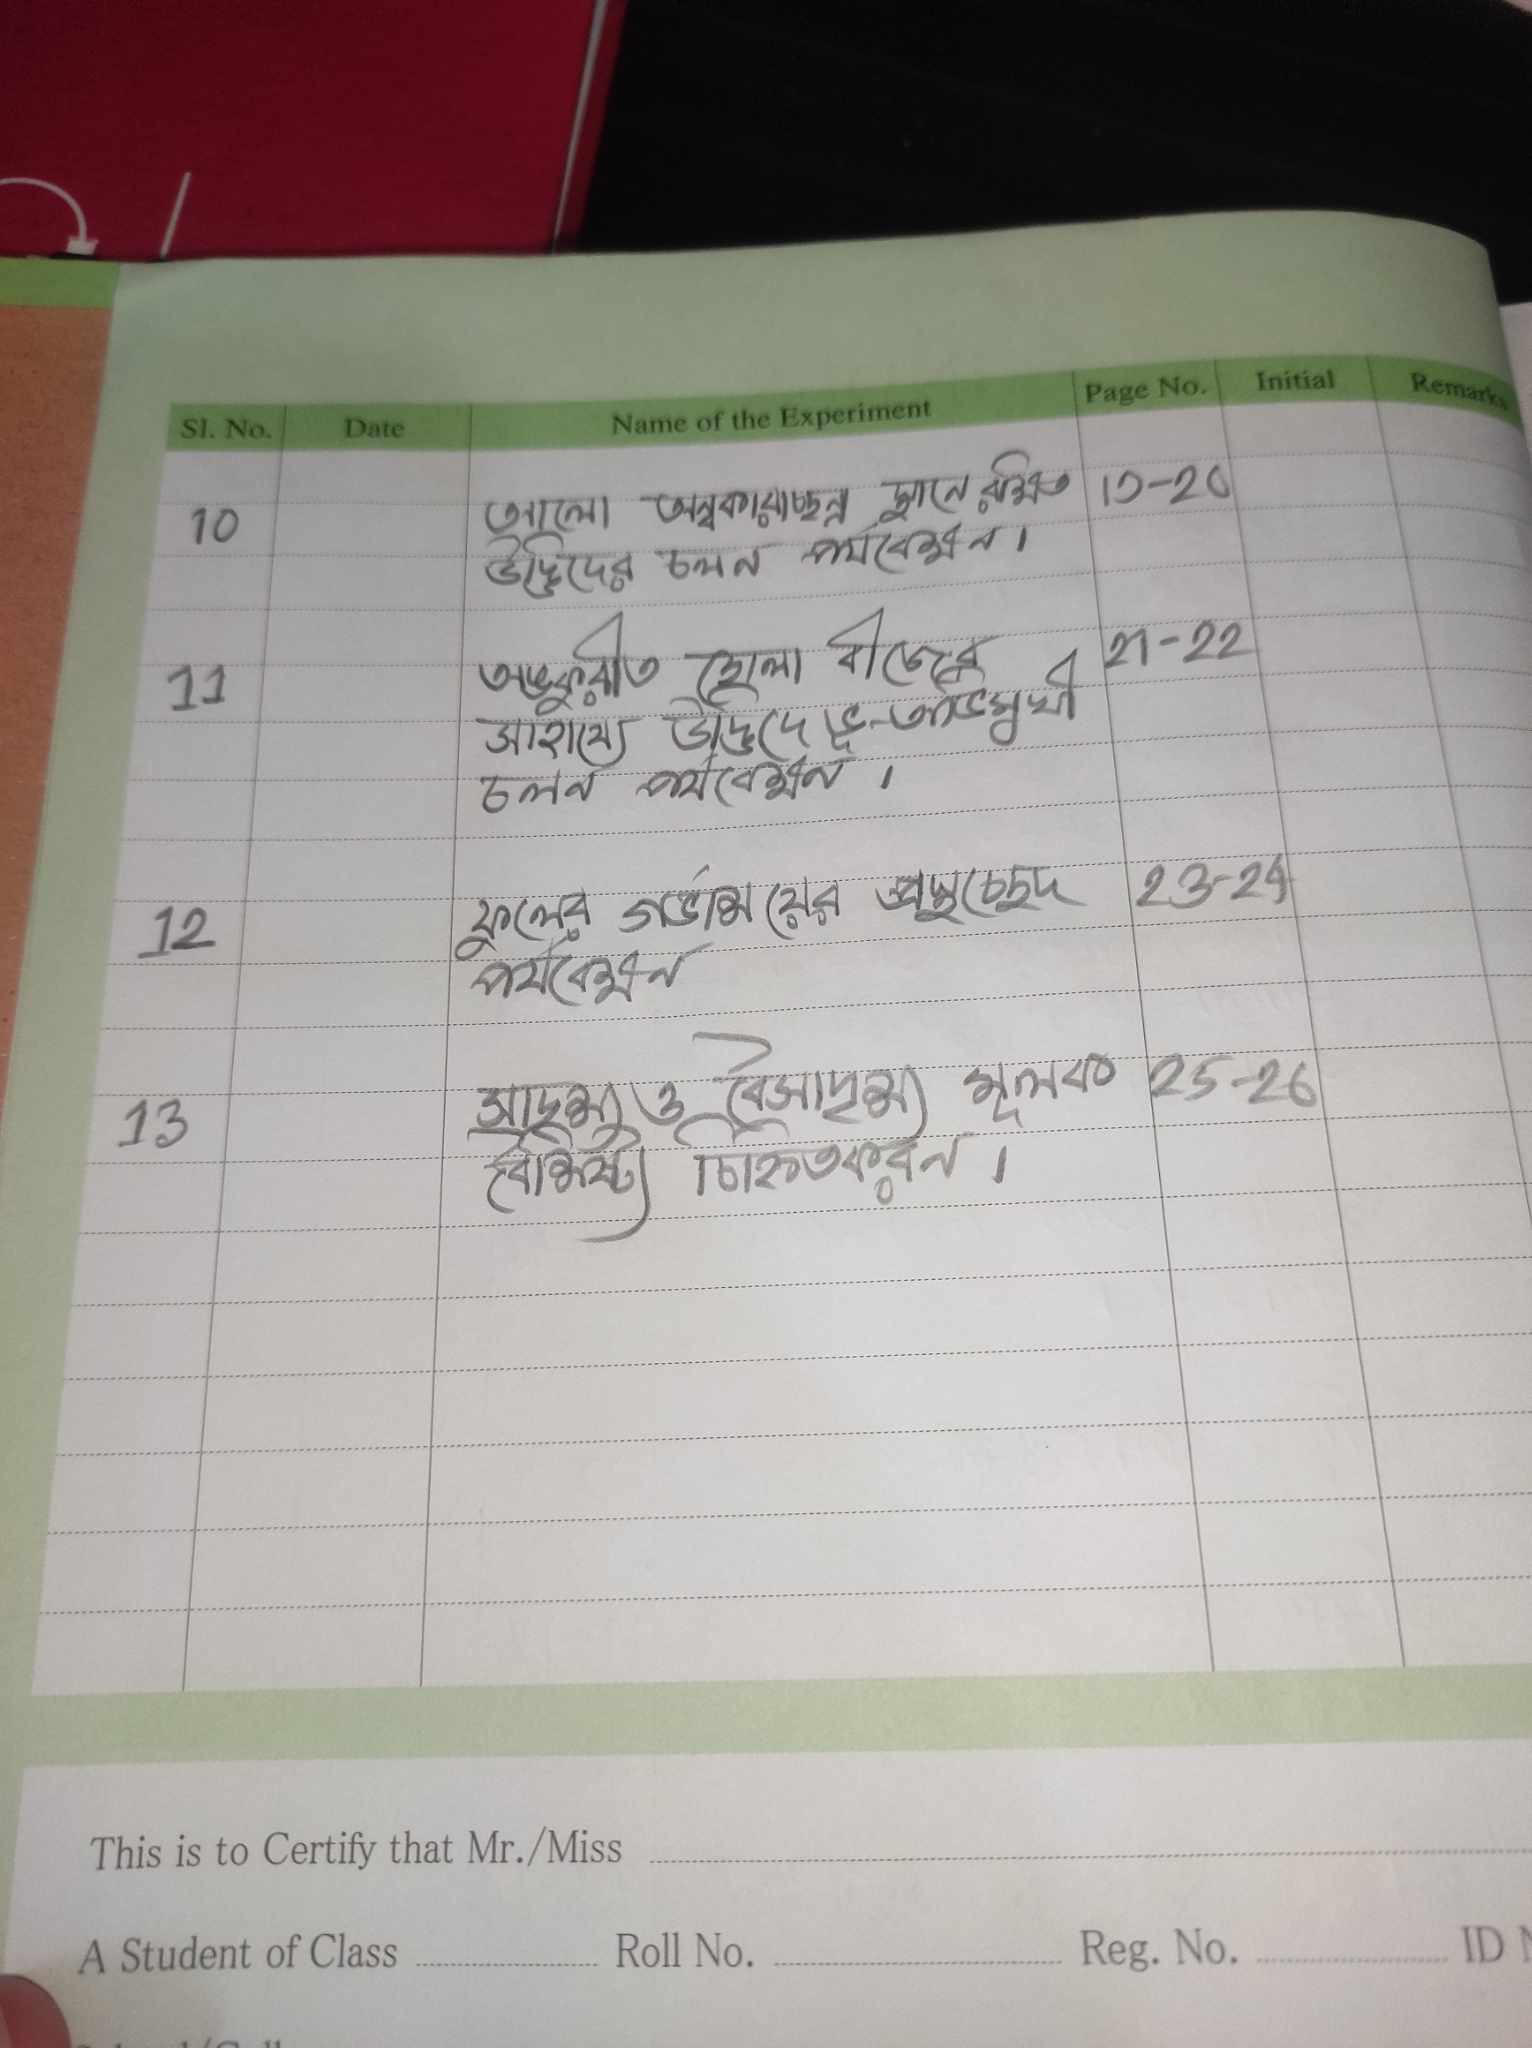 Sl. No. Date Name of the Experiment Page No. Initial Remarks
10 আলো অন্ধকারাচ্ছন্ন স্থানে রক্ষিত 19-20
উদ্ভিদের চলন পর্যবেক্ষন।
11 অঙ্কুরীত ছোলা বীজের 21-22
সাহায্যে উদ্ভিদে ভূ-অভিমুখী
চলন পর্যবেক্ষন।
12 ফুলের গর্ভাশয়ের প্রস্থচ্ছেদ 23-24
পর্যবেক্ষন
13 সাদৃশ্য ও বৈসাদৃশ্য মূলক 25-26
বৈশিষ্ট্য চিহ্নিতকরন।
This is to Certify that Mr./Miss
A Student of Class Roll No. Reg. No. ID